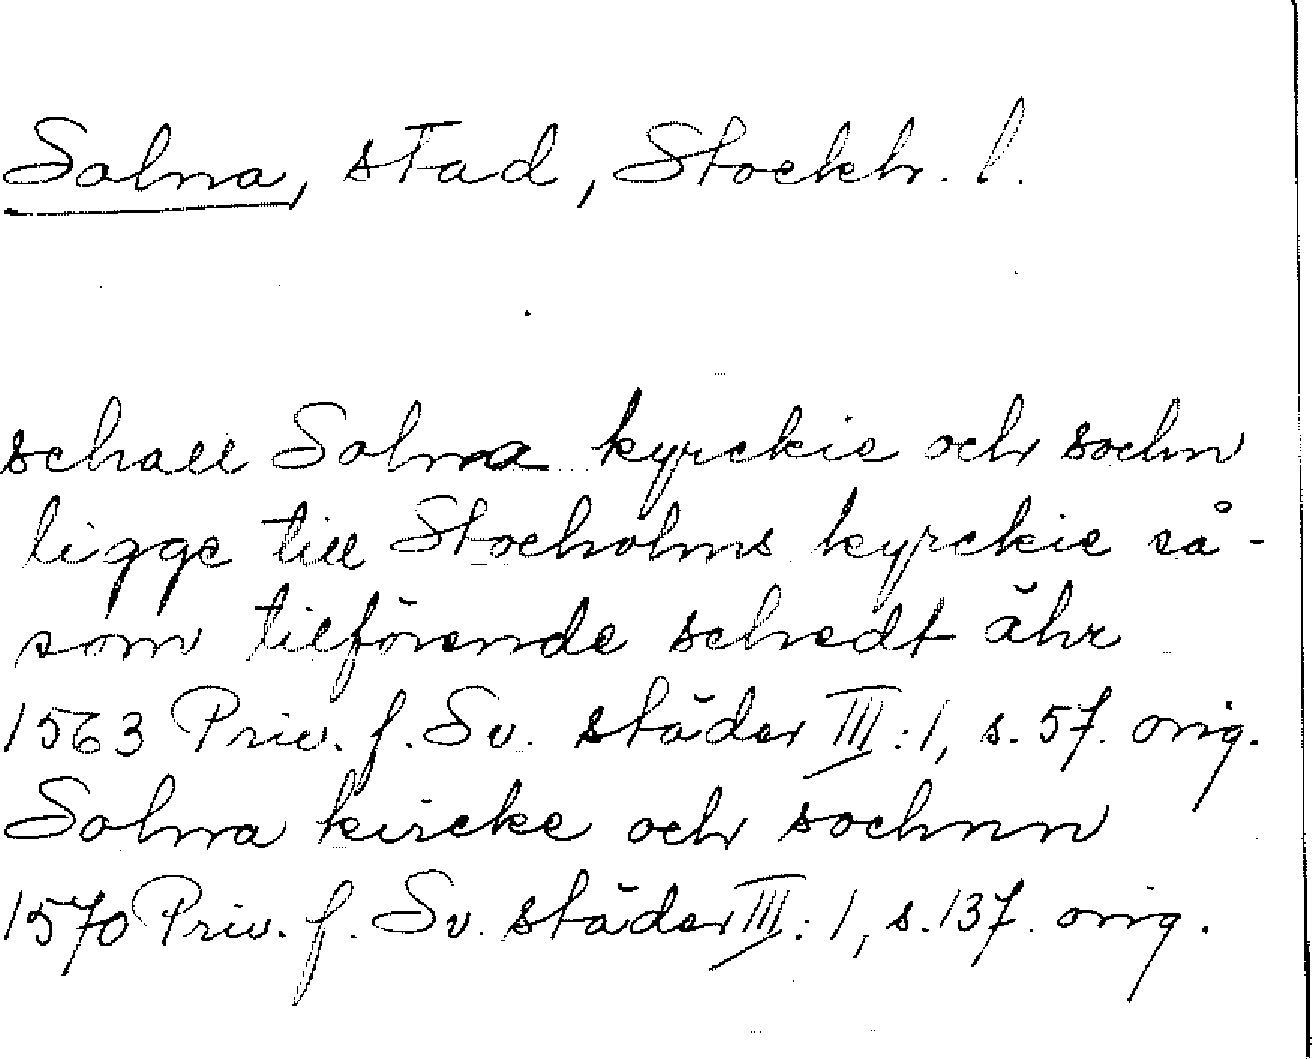 Solna, stad, Stockh. l.
schall Solna kyrckie och sochn
ligge till Stocholms kyrckie så-
som tilförende schedt ähr
1563 Priv. f. Sv. städer III:1, s. 57. orig.
Solna kircke och sochnn
1570 Priv. f. Sv. städer III:1, s. 137. orig.